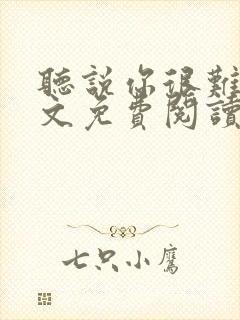 聽說你很難
文免費閱讀
七只小鷹